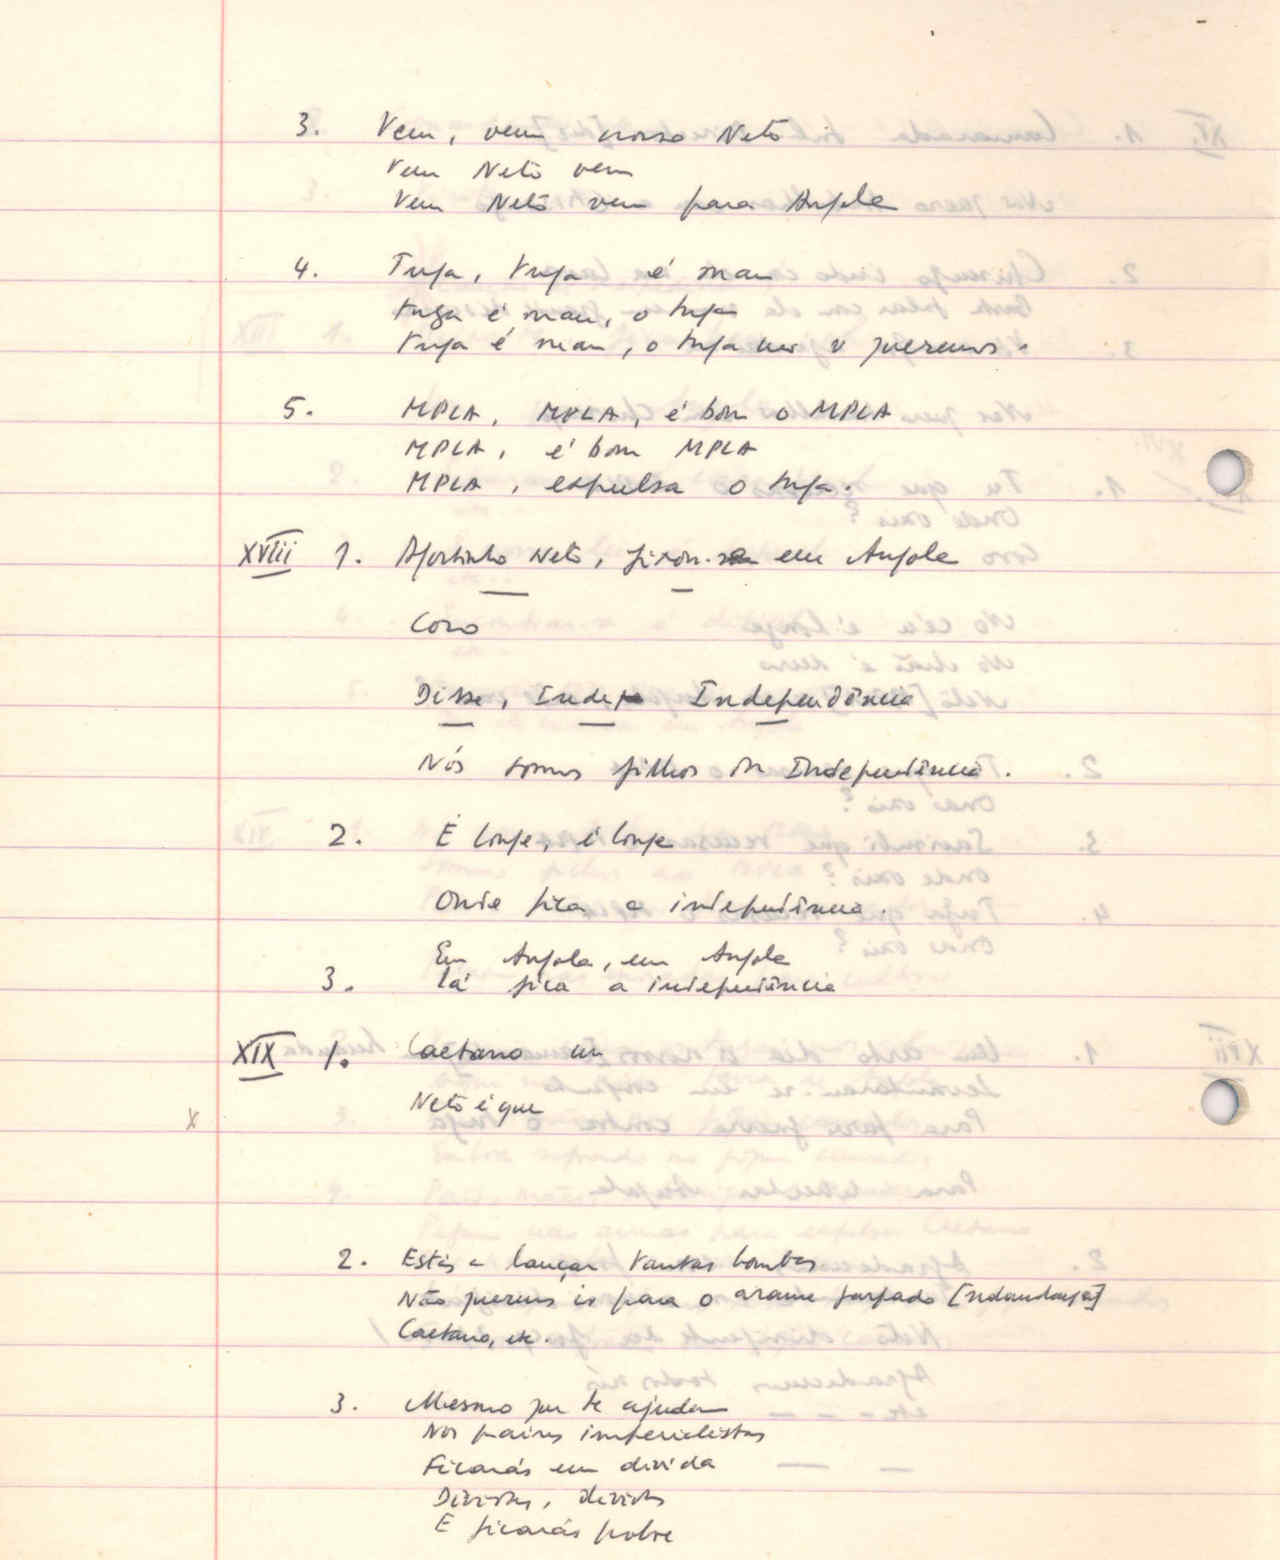 3. Vem, vem nosso Neto
Vem Neto vem
Vem Neto vem para Angola
4. Tuga, tuga é mau
tuga é mau, o tuga
tuga é mau, o tuga queremos.
5. MPLA, MPLA, é bom o MPLA
MPLA, é bom MPLA
MPLA, expulsa o tuga.
XVIII 1. Agostinho Neto, em Angola
Coro
Disse, Independência
Nós somos filhos da Independência.
2. É longe, é longe
Onde fica a independência.
Em Angola, em Angola
3. lá fica a independência
XIX 1. Caetano
Neto é que
X
2. Estás a lançar tantas bombas
Não queremos ir para o arame farpado
Caetano, etc.
3. Mesmo que te ajudam
Nos países imperialistas
Ficarás em dívida
Dívidas, dívidas
E ficarás pobre